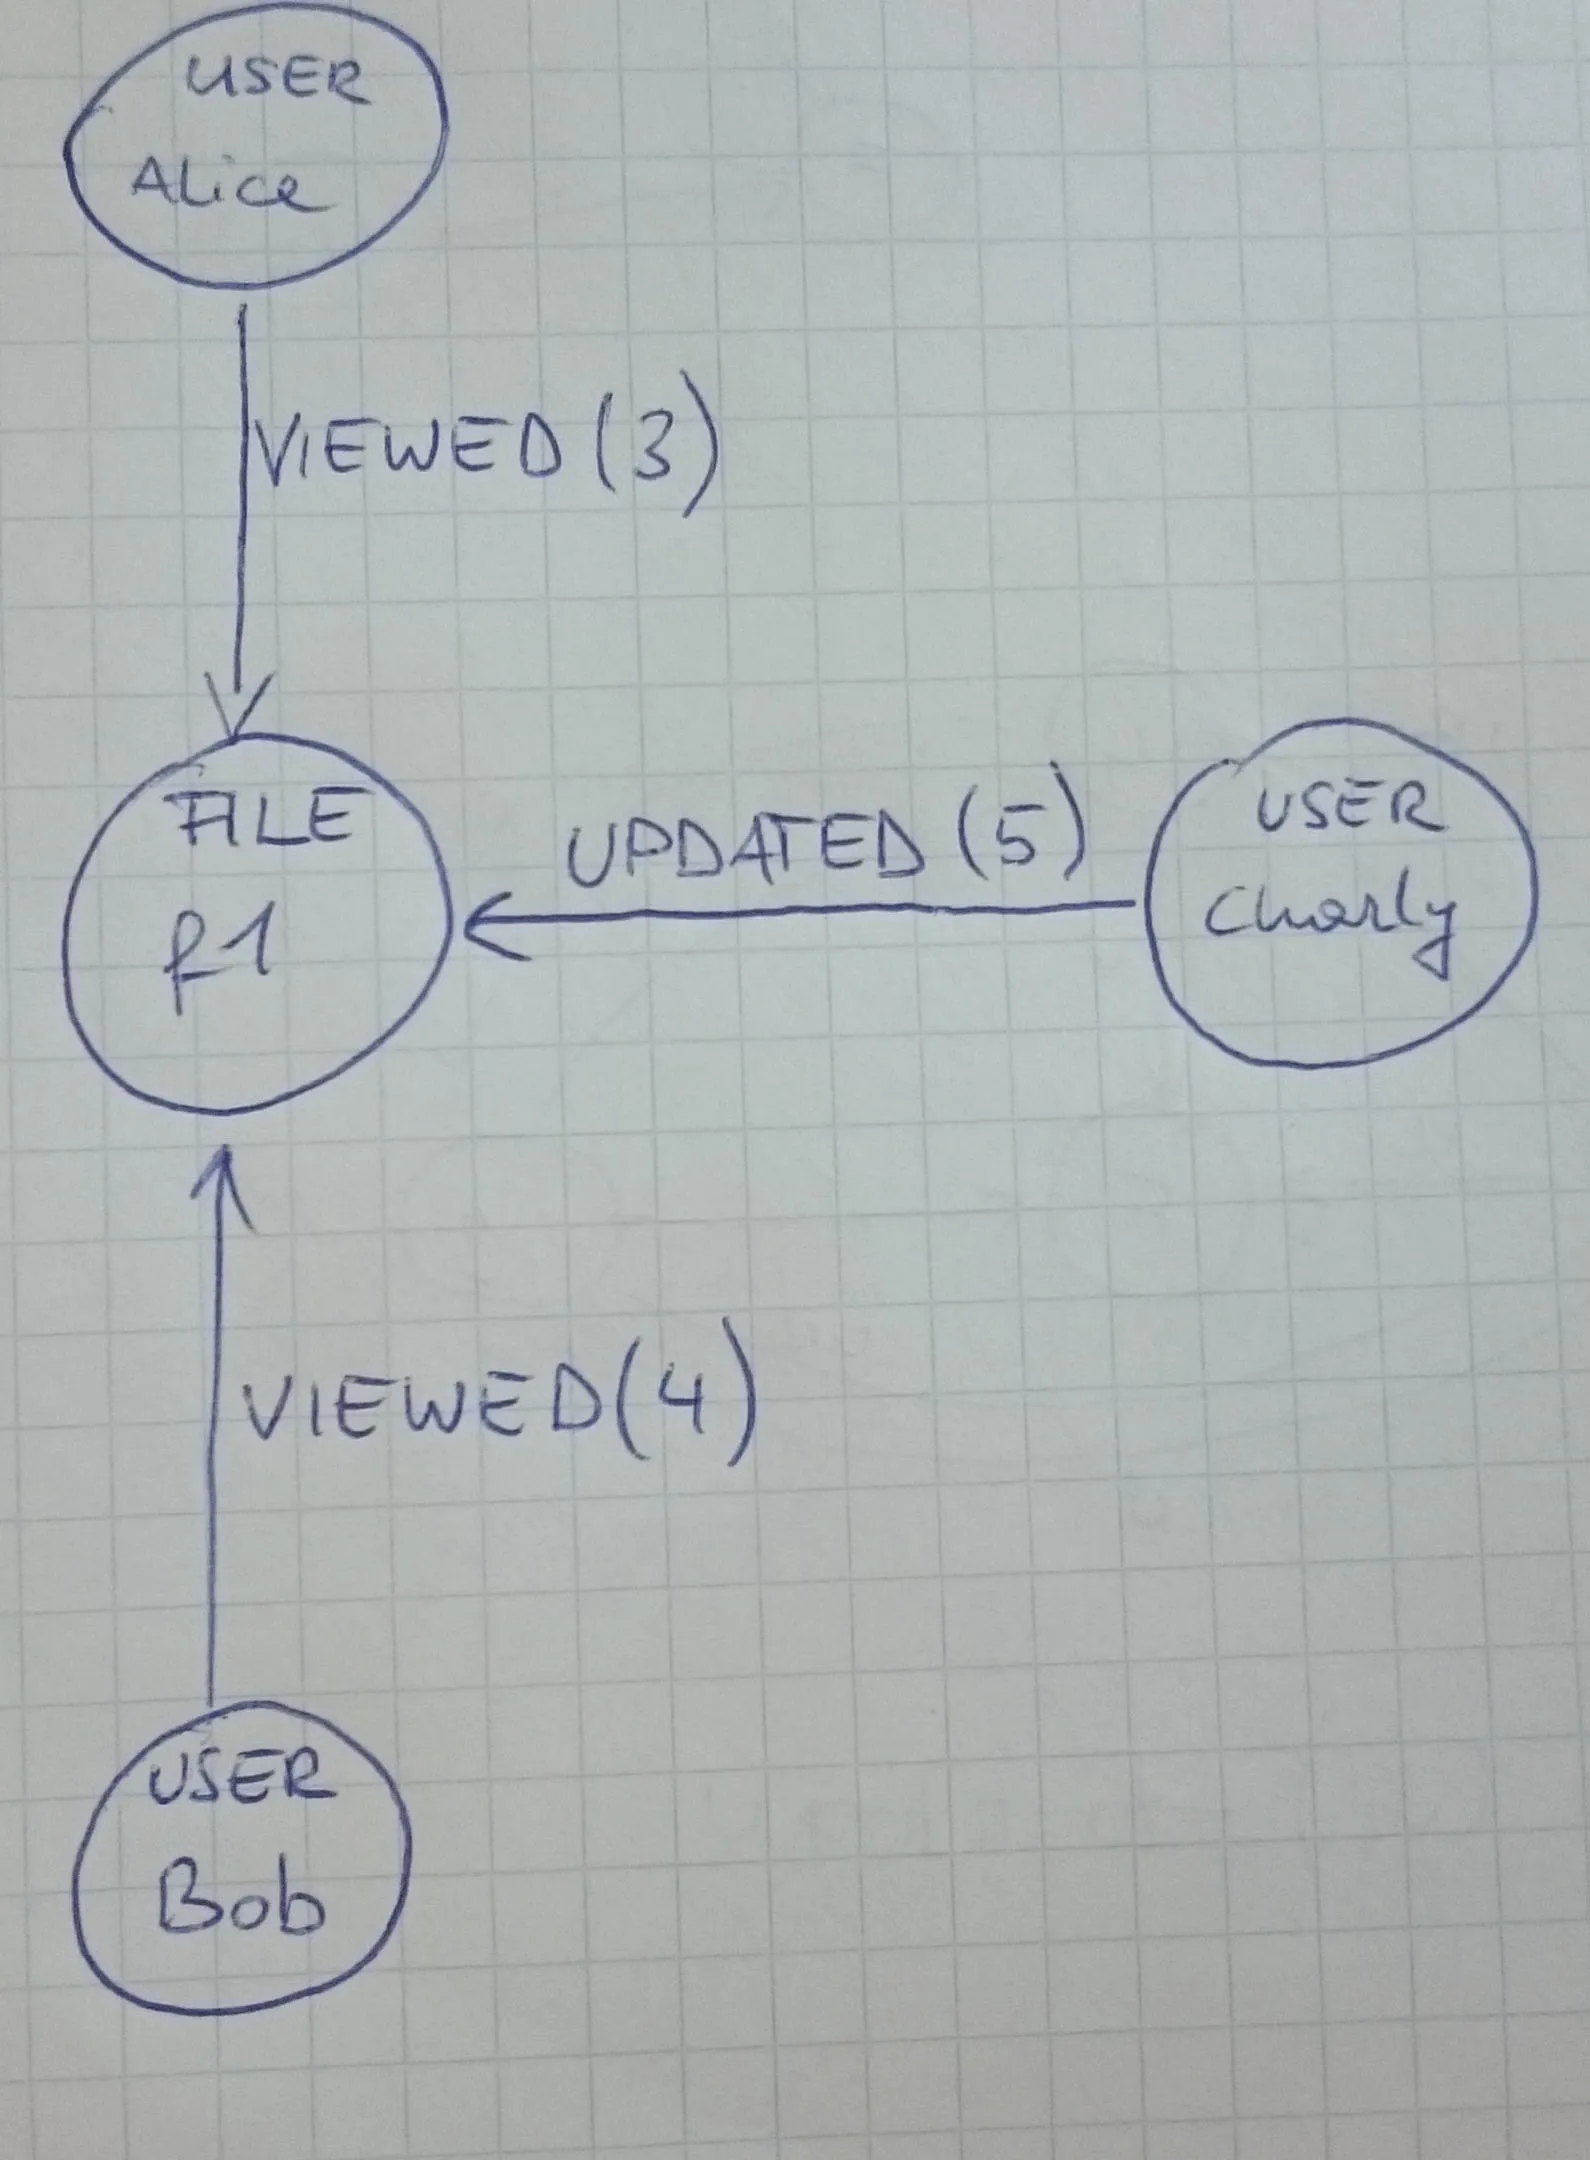 USER
Alice
VIEWED (3)
FILE
f1
UPDATED (5)
USER
Charly
VIEWED (4)
USER
Bob